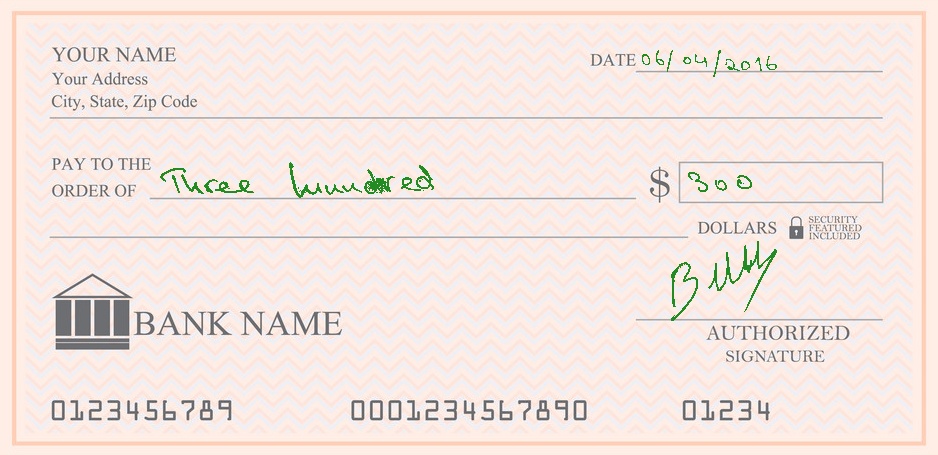 YOUR NAME
Your Address
City, State, Zip Code
DATE 06/04/2016
PAY TO THE
ORDER OF Three hundred $ 300
DOLLARS
SECURITY
FEATURED
INCLUDED
BANK NAME
AUTHORIZED
SIGNATURE
0123456789 0001234567890 01234